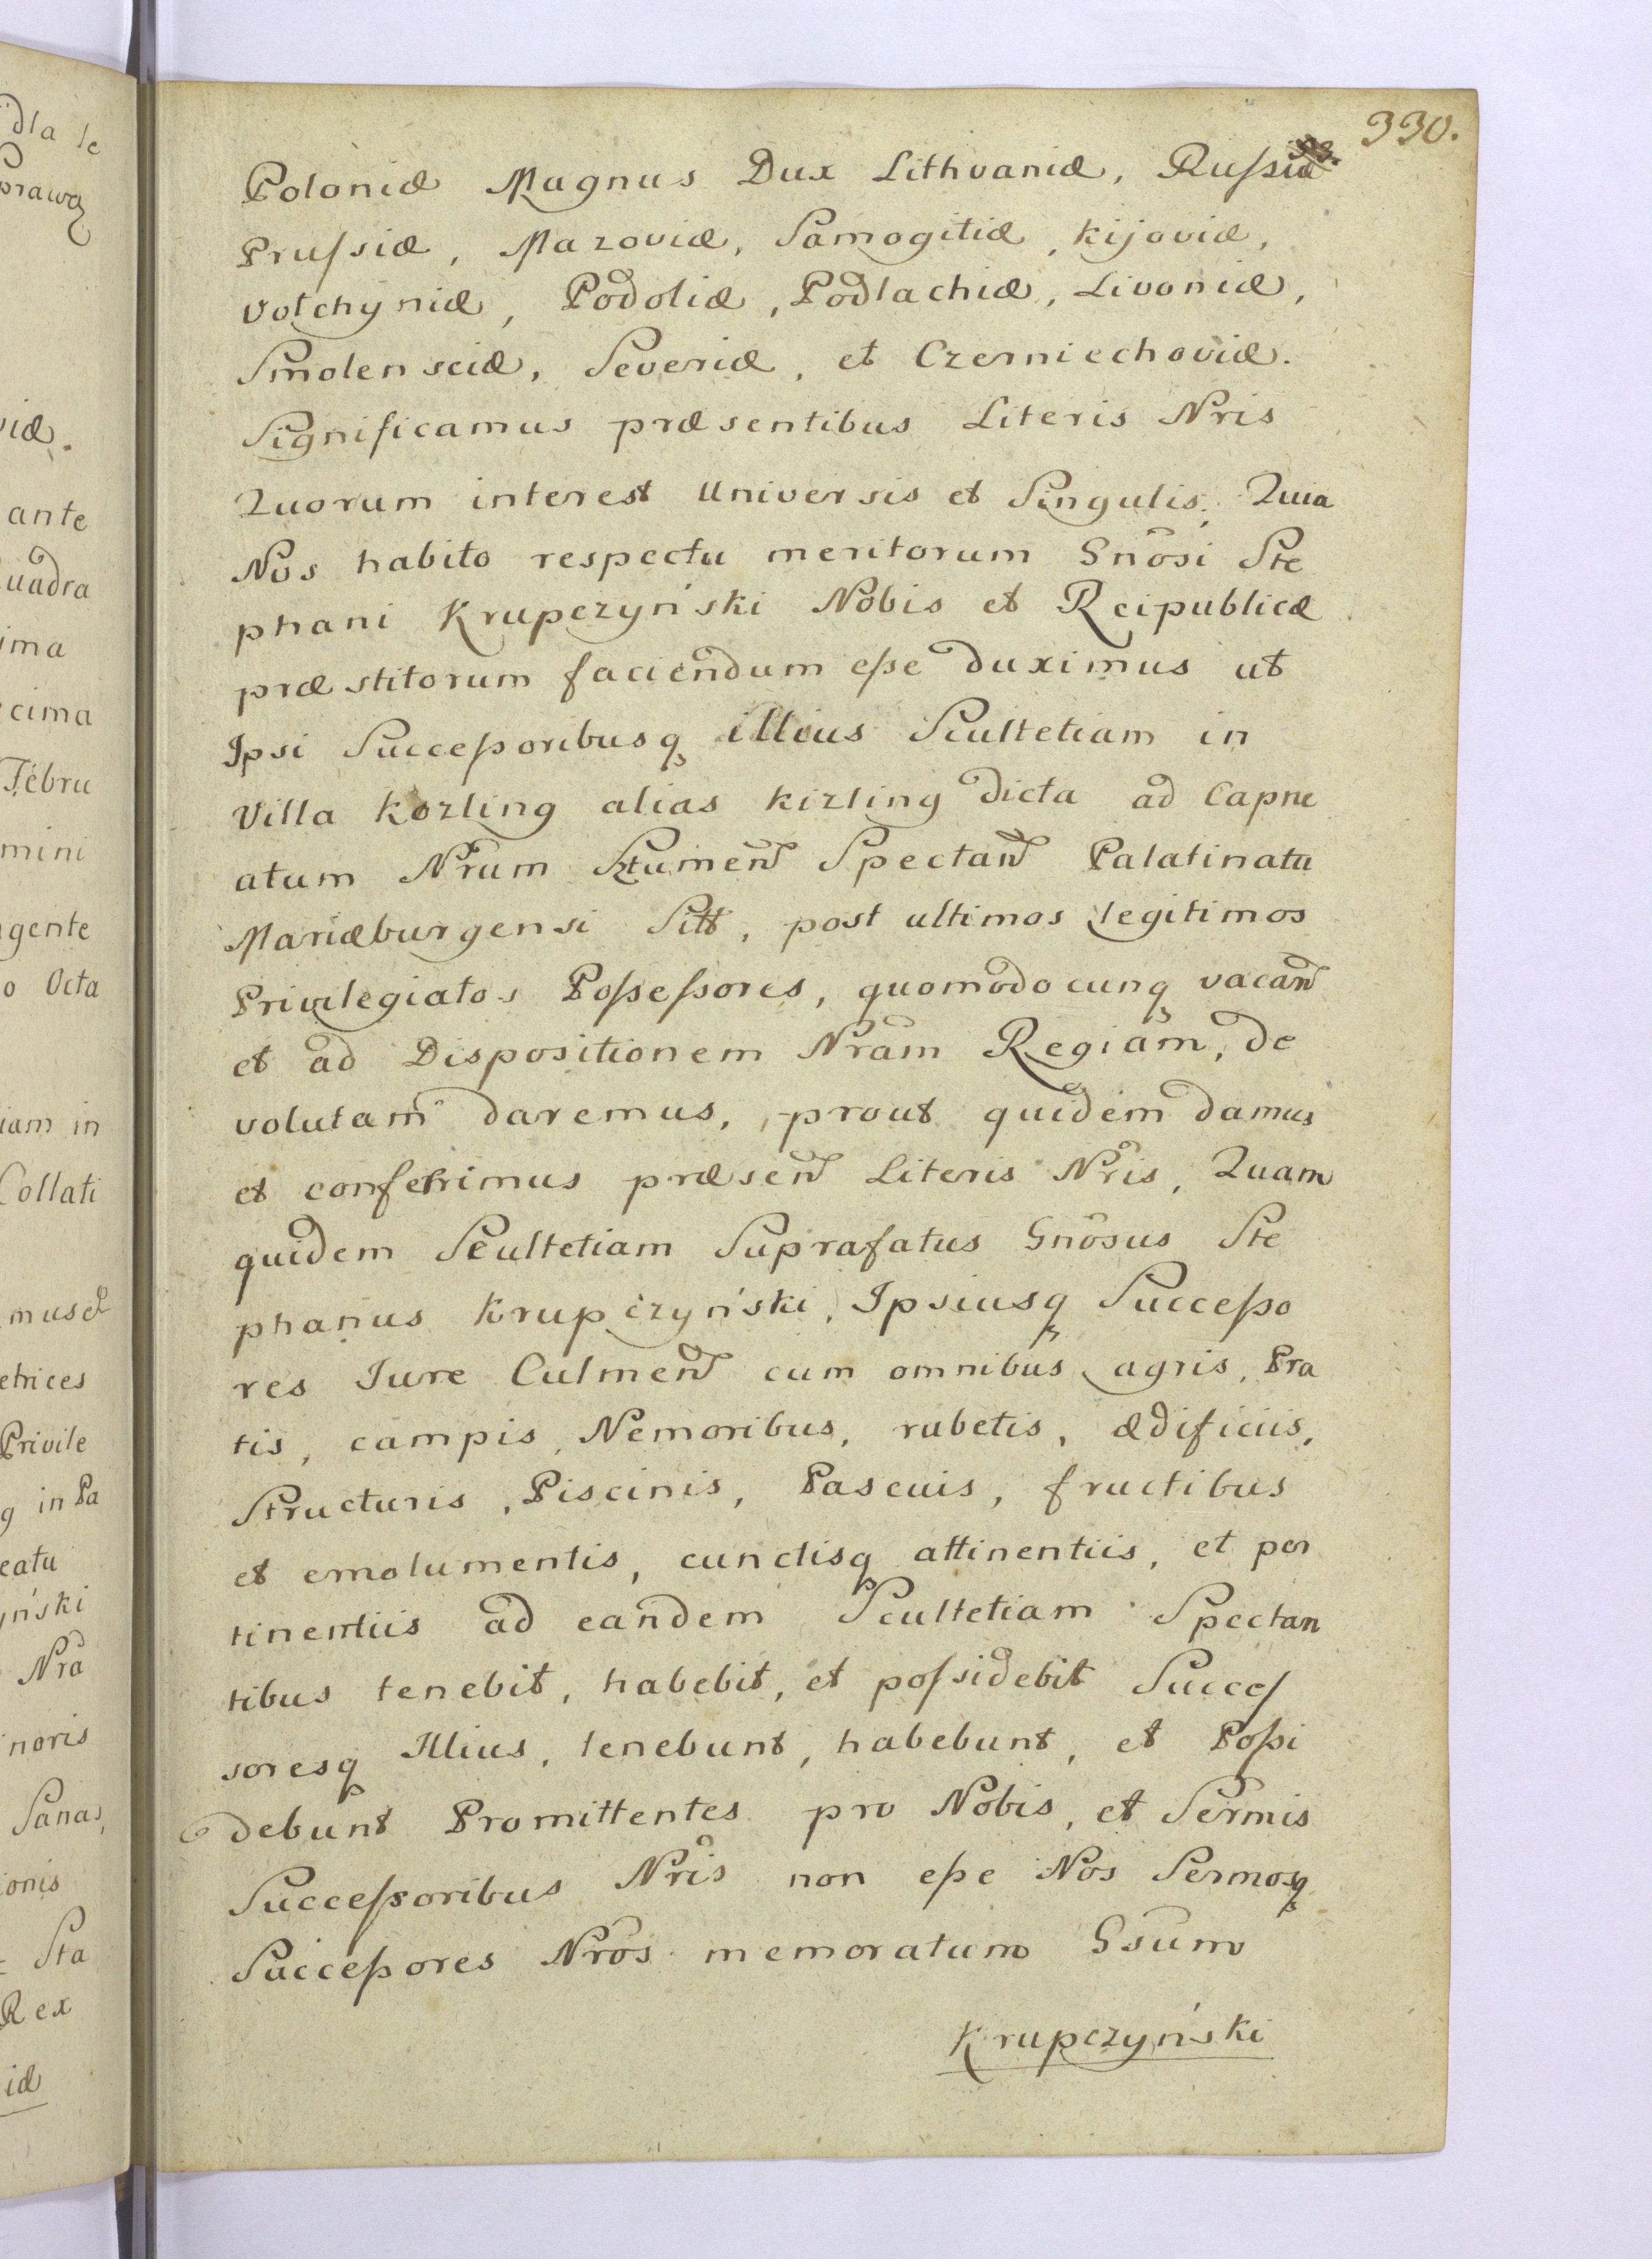 330.
Poloniæ Magnus Dux Lithvaniæ, Rufsiæ
Prufsiæ, Mazoviæ, Samogitiæ, Kijoviæ,
Volchyniæ, Podoliæ, Podlachiæ, Livoniæ,
Smolensciæ, Severiæ, et Czerniechoviæ.
Significamus præsentibus Literis Nris
Quorum interest Universis et Singulis. Quia
Nos habito respectu meritorum Gnôsi Ste
phani Krupczyński Nobis et Reipublicæ
præstitorum faciendum eße duximus ut
Ipsi Succeßoribusq illius Scultetiam in
Villa Kozling alias Kizling dicta ad Capne
atum Nrum Sztumen Spectan Palatinatu
Mariæburgensi Sitt, post ultimos legitimos
Privilegiatos Poßeßores, quomodocunq vacan
et ad Dispositionem Nram Regiam, de
volutam daremus, prout quidem damus
et conferimus præsen Literis Nris, Quam
quidem Scultetiam Suprafatus Gnôsus Ste
phanus Krupczyński, Ipsiusq Succeßo
res Jure Culmen cum omnibus agris, Pra
tis, campis, Nemoribus, rubetis, ædificiis,
Structuris, Piscinis, Pascuis, fructibus
et emolumentis, cunctisq attinentiis, et per
tinentiis ad eandem Scultetiam Spectan
tibus tenebit, habebit, et pofsidebit Succef
soresq Illius, tenebunt, habebunt, et Poßi
debunt Promittentes pro Nobis, et Sermis
Succeßoribus Nris non eße Nos Sermosq
Succeßores Nros memoratum Gsum
Krupczyński
dla le
prawa
viæ.
ante
uadra
ima
cima
Febru
mini
gente
o Octa
iam in
Collati
mus et
etrices
Privile
q in Pa
eatu
yński
Nra
noris
Sanas,
ionis
Sta
Rex
iæ